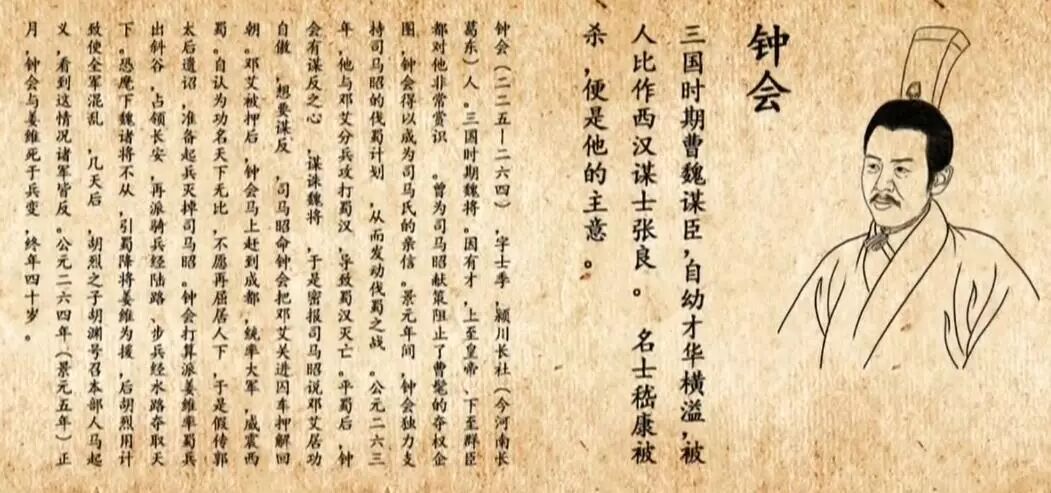 钟会
三国时期曹魏谋臣，自幼才华横溢，被
人比作西汉谋士张良。 名士嵇康被
杀，便是他的主意。
钟会（二二五—二六四），字士季，颍川长社（今河南长
葛东）人。三国时期魏将。因有才，上至皇帝、下至群臣
都对他非常赏识 曾为司马昭献策阻止了曹髦的夺权企
图，钟会得以成为司马氏的亲信。景元年间，钟会独力支
持司马昭的伐蜀计划 从而发动伐蜀之战 公元二六三
年，他与邓艾分兵攻打蜀汉，导致蜀汉灭亡。平蜀后，钟
会有谋反之心 谋诛魏将 于是密报司马昭说邓艾居功
自傲，想要谋反 司马昭命钟会把邓艾关进囚车押解回
朝。邓艾被押后，钟会马上赶到成都，统率大军，威震西
蜀。自认为功名天下无比，不愿再屈居人下，于是假传郭
太后遗诏，准备起兵灭掉司马昭。钟会打算派姜维率蜀兵
出斜谷，占领长安，再派骑兵经陆路、步兵经水路夺取天
下。恐麾下魏诸将不从，引蜀降将姜维为援，后胡烈用计
致使全军混乱 几天后，胡烈之子胡渊号召本部人马起
义，看到这情况诸军皆反。公元二六四年（景元五年）正
月，钟会与姜维死于兵变，终年四十岁。